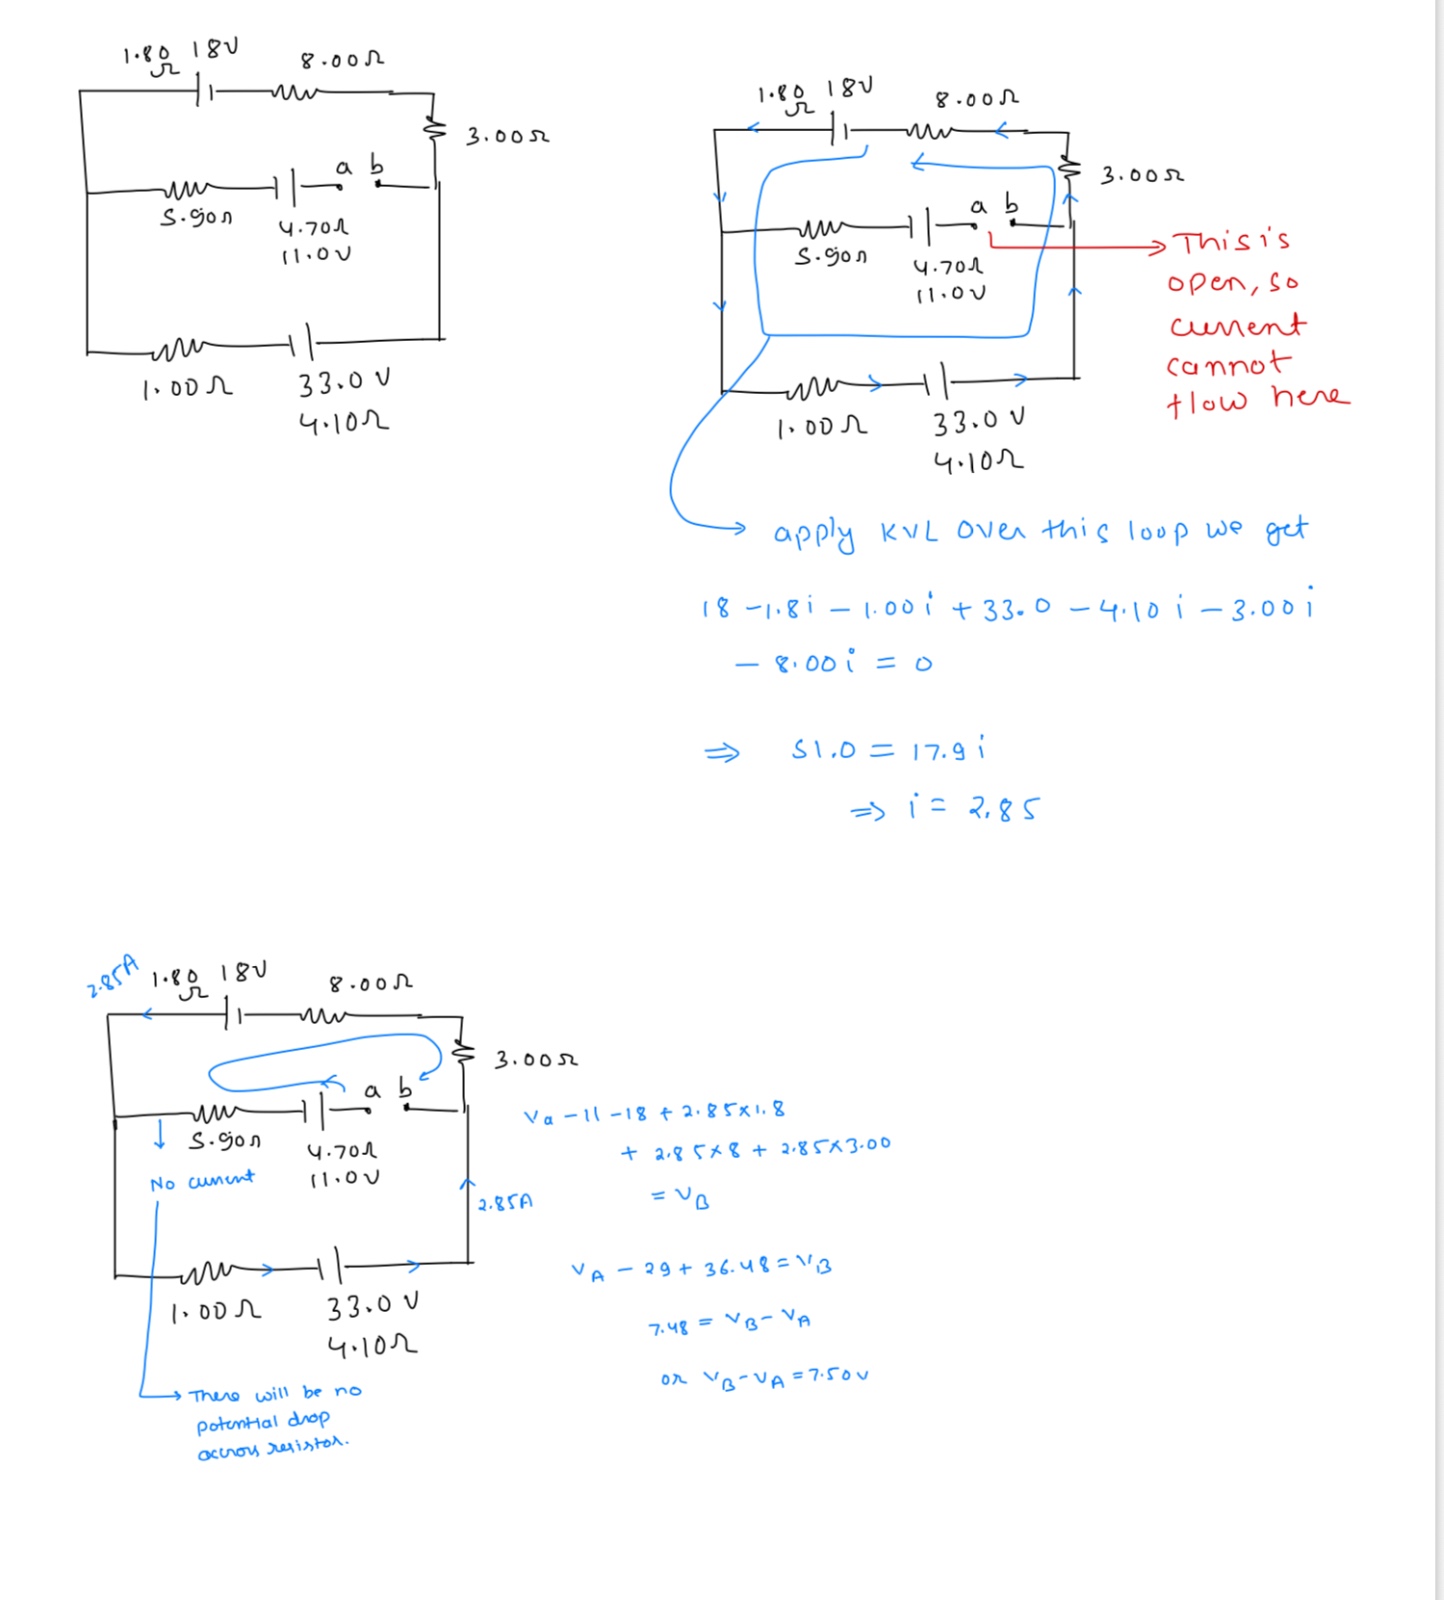 1.80 18V
Ω
8.00Ω
3.00Ω
a b
5.90Ω
4.70Ω
11.0V
1.00Ω
33.0 V
4.10Ω
1.80 18V
Ω
8.00Ω
3.00Ω
a b
5.90Ω
4.70Ω
11.0V
This is
open, so
current
cannot
flow here
1.00Ω
33.0 V
4.10Ω
apply KVL over this loop we get
18 -1.8i - 1.00 i + 33.0 - 4.10 i - 3.00 i
- 8.00 i = 0
⇒ 51.0 = 17.9 i
⇒ i = 2.85
2.85A
1.80 18V
Ω
8.00Ω
3.00Ω
a b
5.90Ω
4.70Ω
11.0V
No current
2.85A
1.00Ω
33.0 V
4.10Ω
There will be no
potential drop
across resistor.
Va - 11 - 18 + 2.85×1.8
+ 2.85×8 + 2.85×3.00
= VB
VA - 29 + 36.48 = VB
7.48 = VB - VA
or VB - VA = 7.50 V